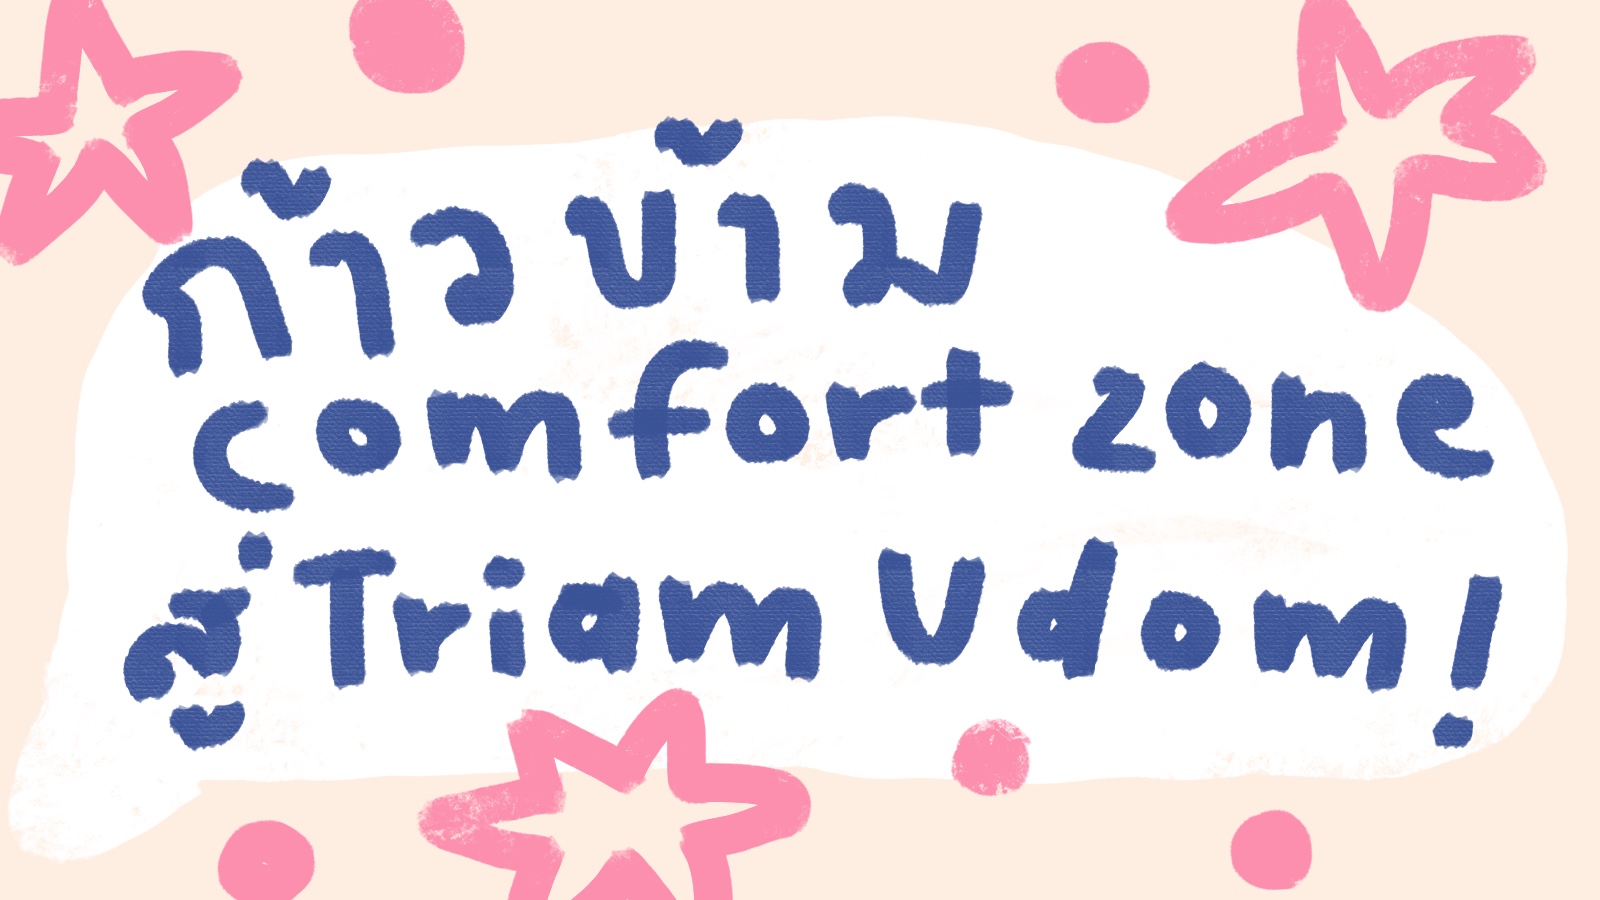 ก้าวข้าม
comfort zone
สู่ Triam Udom!